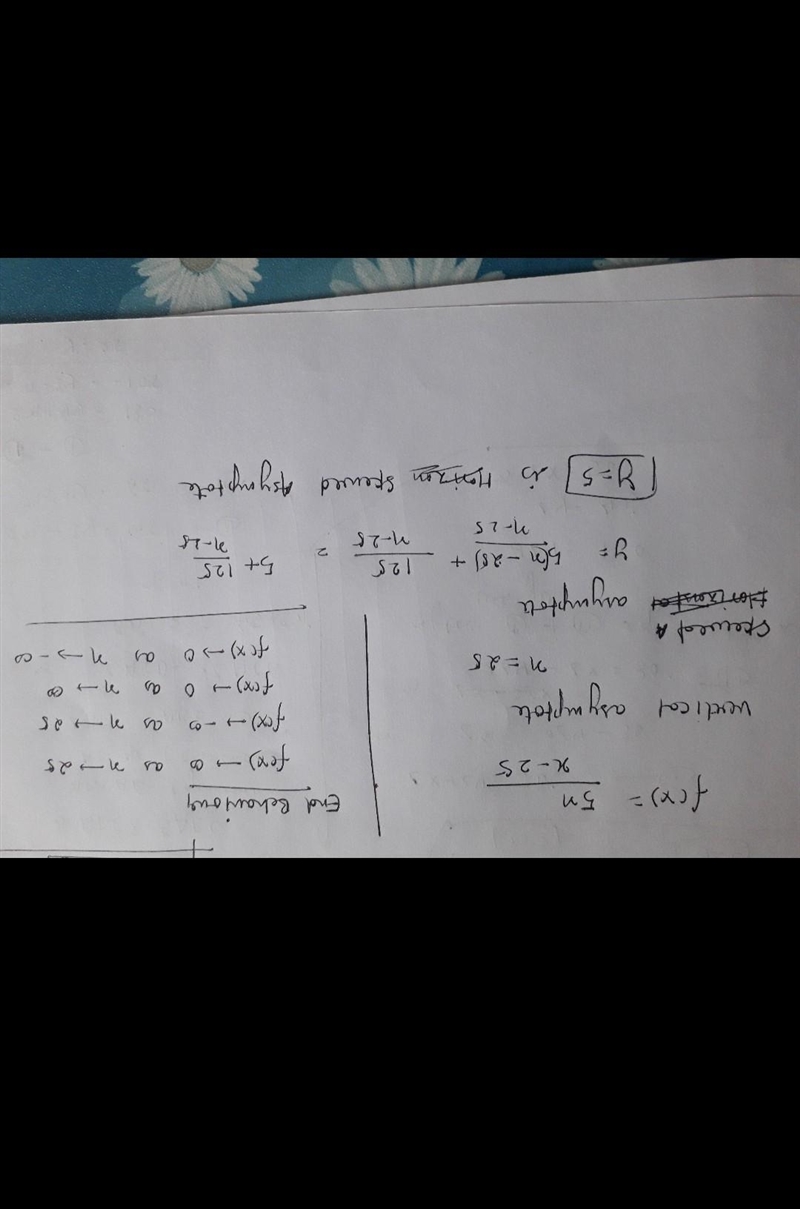 f(x) = 5x / x-25
vertical asymptote
x = 25
Skewed
Horizontal asymptote
y = 5(x-25) / x-25 + 125 / x-25 = 5 + 125 / x-25
y=5 is Horizon skewed Asymptote
End Behaviour
f(x) → ∞ as x → 25
f(x) → -∞ as x → 25
f(x) → 0 as x → ∞
f(x) → 0 as x → -∞